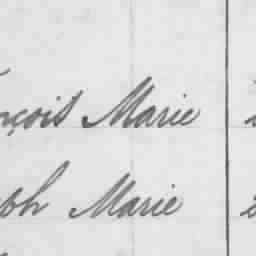 nçois Marie
eph Marie